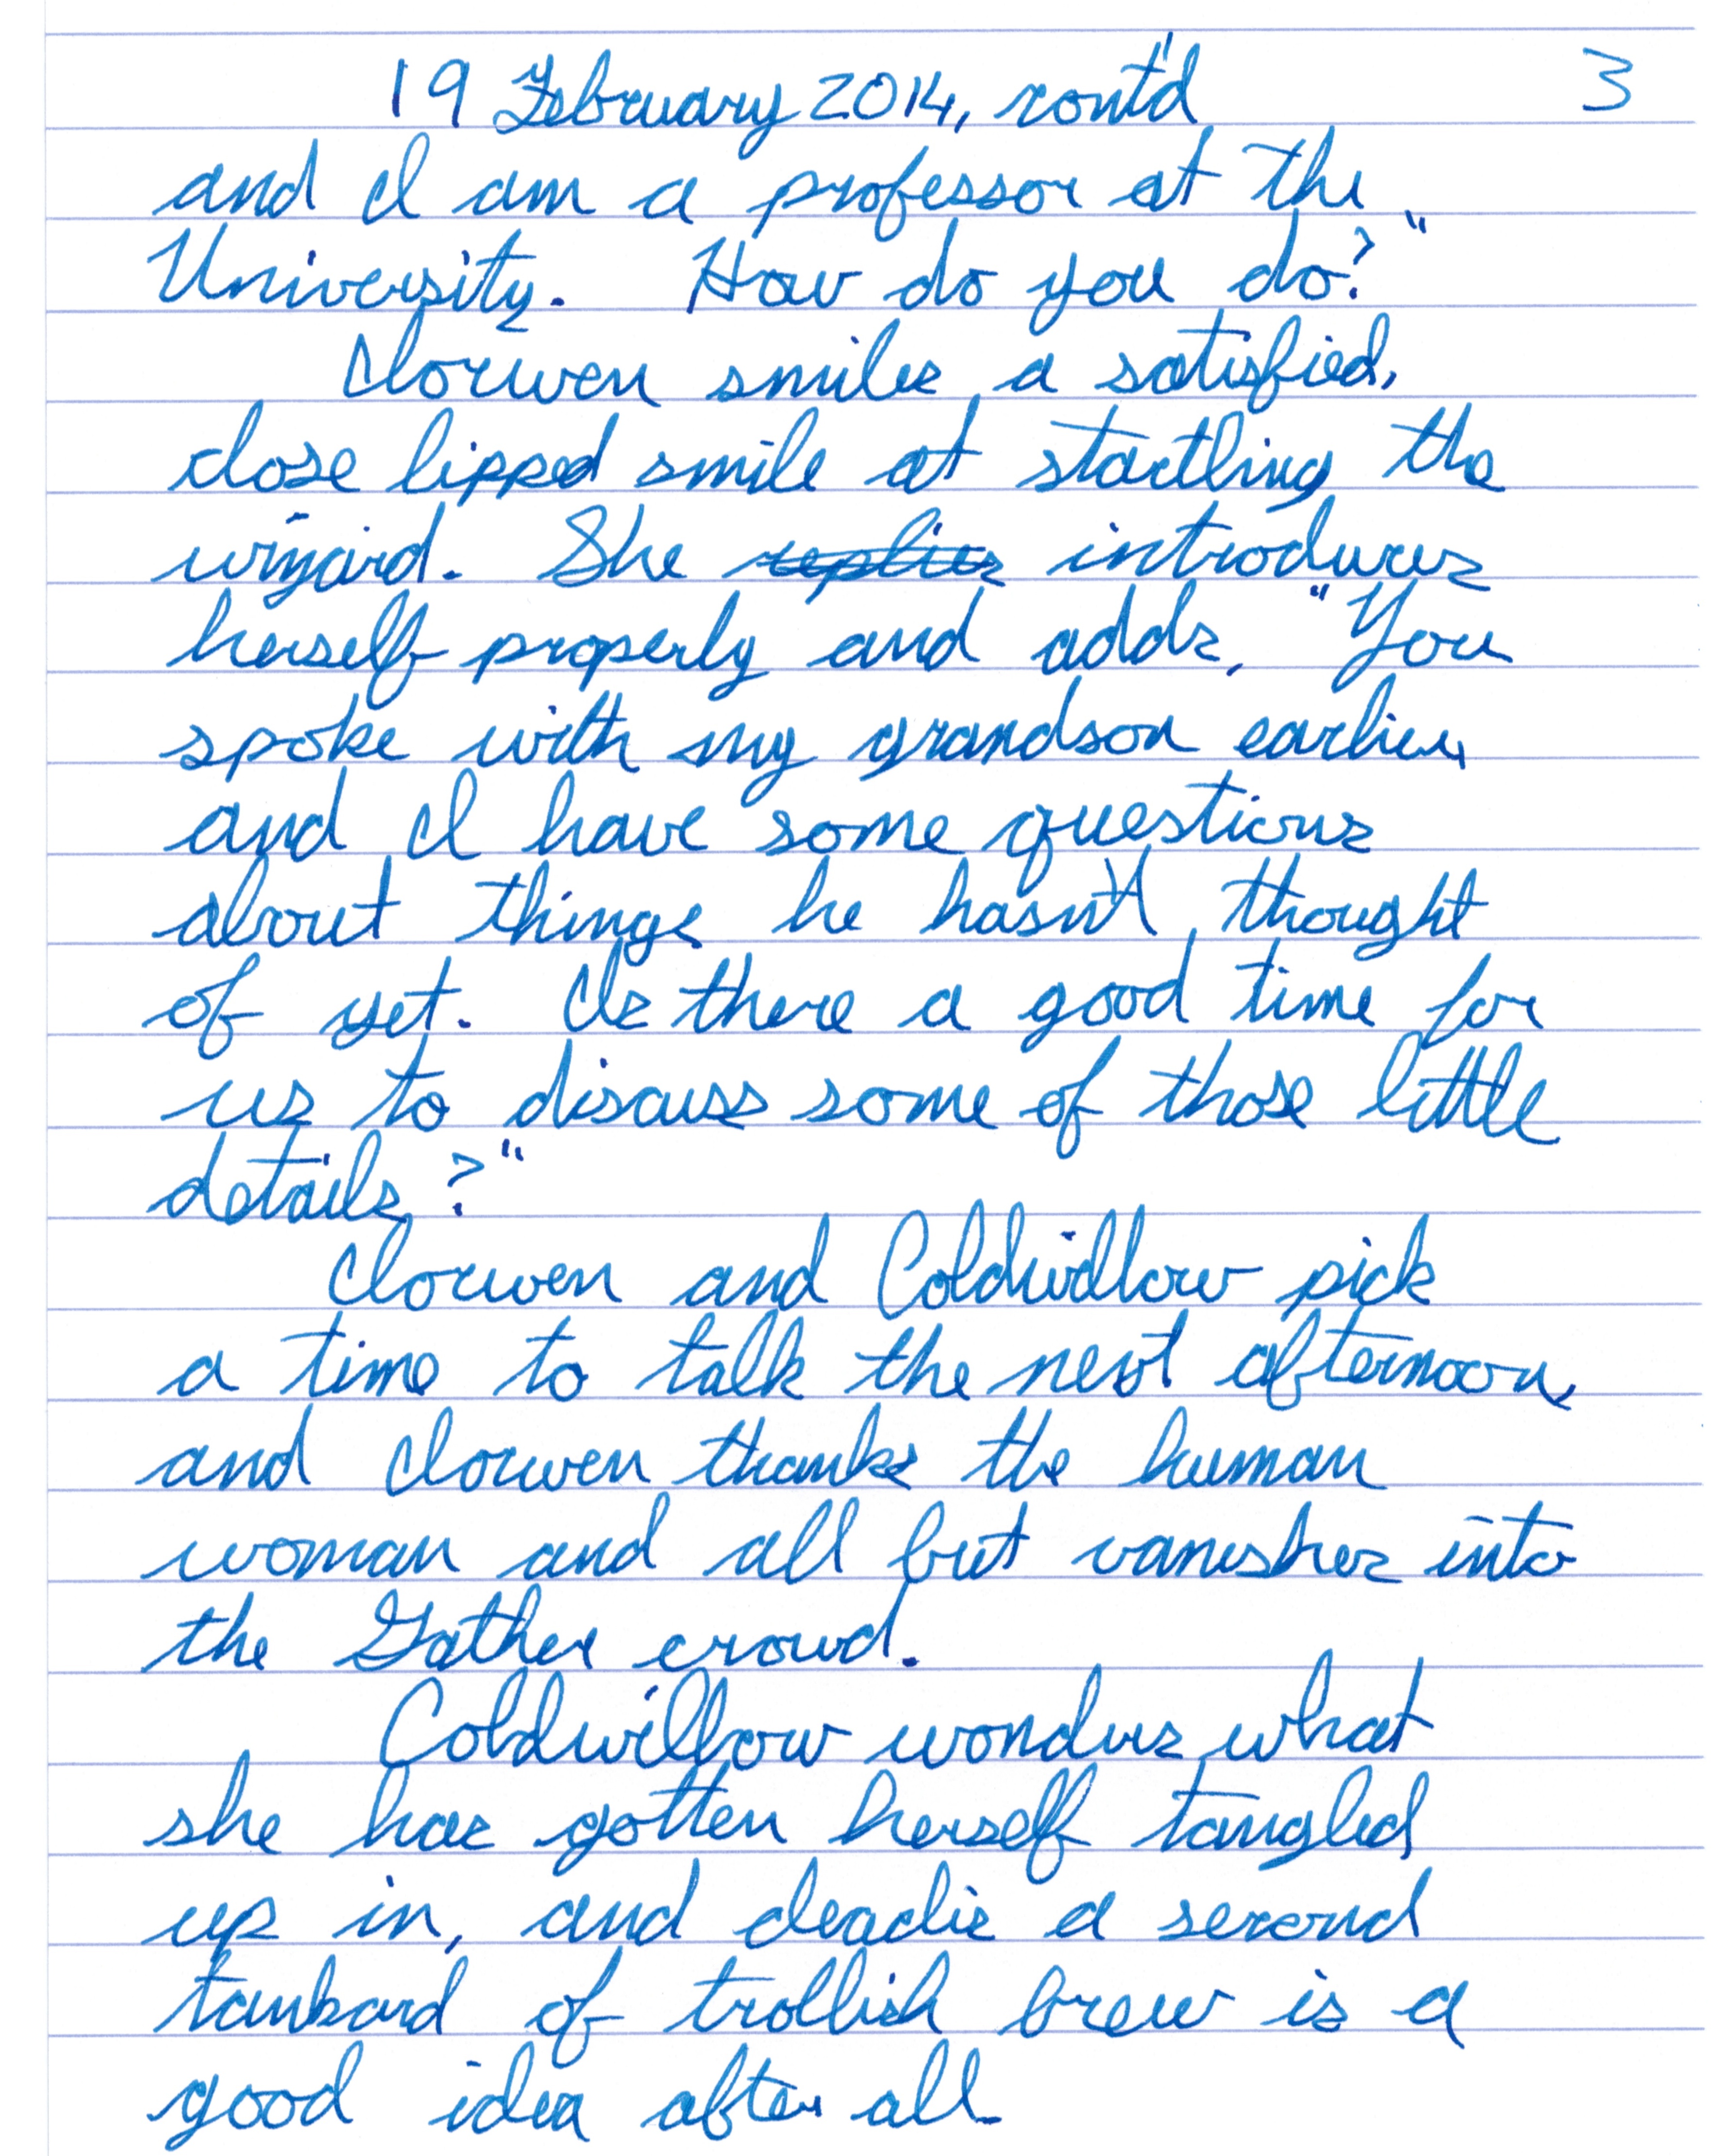 19 February 2014, cont'd 3
and I am a professor at the
University. How do you do?"
Clorwen smiles a satisfied,
close lipped smile at startling the
wizard. She ~~replies~~ introduces
herself properly and adds, "You
spoke with my grandson earlier,
and I have some questions
about things he hasn't thought
of yet. Is there a good time for
us to discuss some of those little
details?"
Clorwen and Coldwillow pick
a time to talk the next afternoon,
and Clorwen thanks the human
woman and all but vanishes into
the Gather crowd.
Coldwillow wonders what
she has gotten herself tangled
up in, and a second
tankard of trollish brew is a
good idea after all.